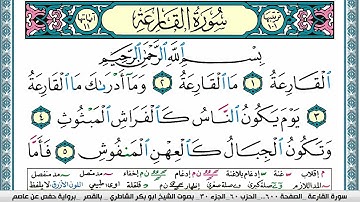 سُورَةُ القَارِعَةِ
بِسْمِ اللَّهِ الرَّحْمَٰنِ الرَّحِيمِ
الْقَارِعَةُ ١ مَا الْقَارِعَةُ ٢ وَمَا أَدْرَاكَ مَا الْقَارِعَةُ
٣ يَوْمَ يَكُونُ النَّاسُ كَالْفَرَاشِ الْمَبْثُوثِ ٤
وَتَكُونُ الْجِبَالُ كَالْعِهْنِ الْمَنفُوشِ ٥ فَأَمَّا
سورة القارعة الصفحة ٦٠٠ الحزب ٦٠ الجزء ٣٠ بصوت الشيخ ابو بكر الشاطري بالقصر برواية حفص عن عاصم